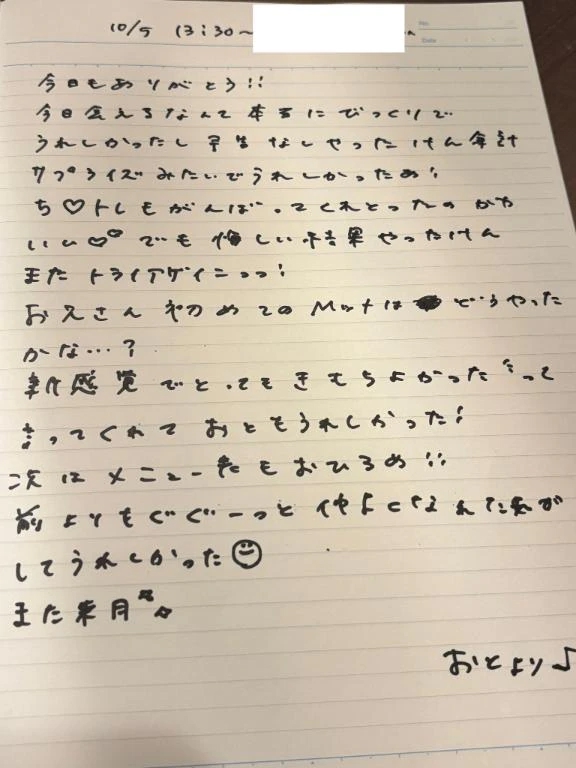 10/5 13:30~
今日もありがとう!!
今日会えるなんて本当にびっくりで
うれしかったし 予告なしやったけん 余計
サプライズみたいでうれしかったぁ!
ち♡トレもがんば、てくれとったのがや
いい♡♡ でも 悔しい結果やったけん
またトライアゲインっっ!
お兄さん 初めての Mットは どうやった
かな…?
新感覚でとってもきもちよかったミって
言ってくれておともうれしかった!
次はメニューたもおひろめ!!
前よりもぐぐーっと仲よくなれた気が
してうれしかった☺
また来月
おとより♪